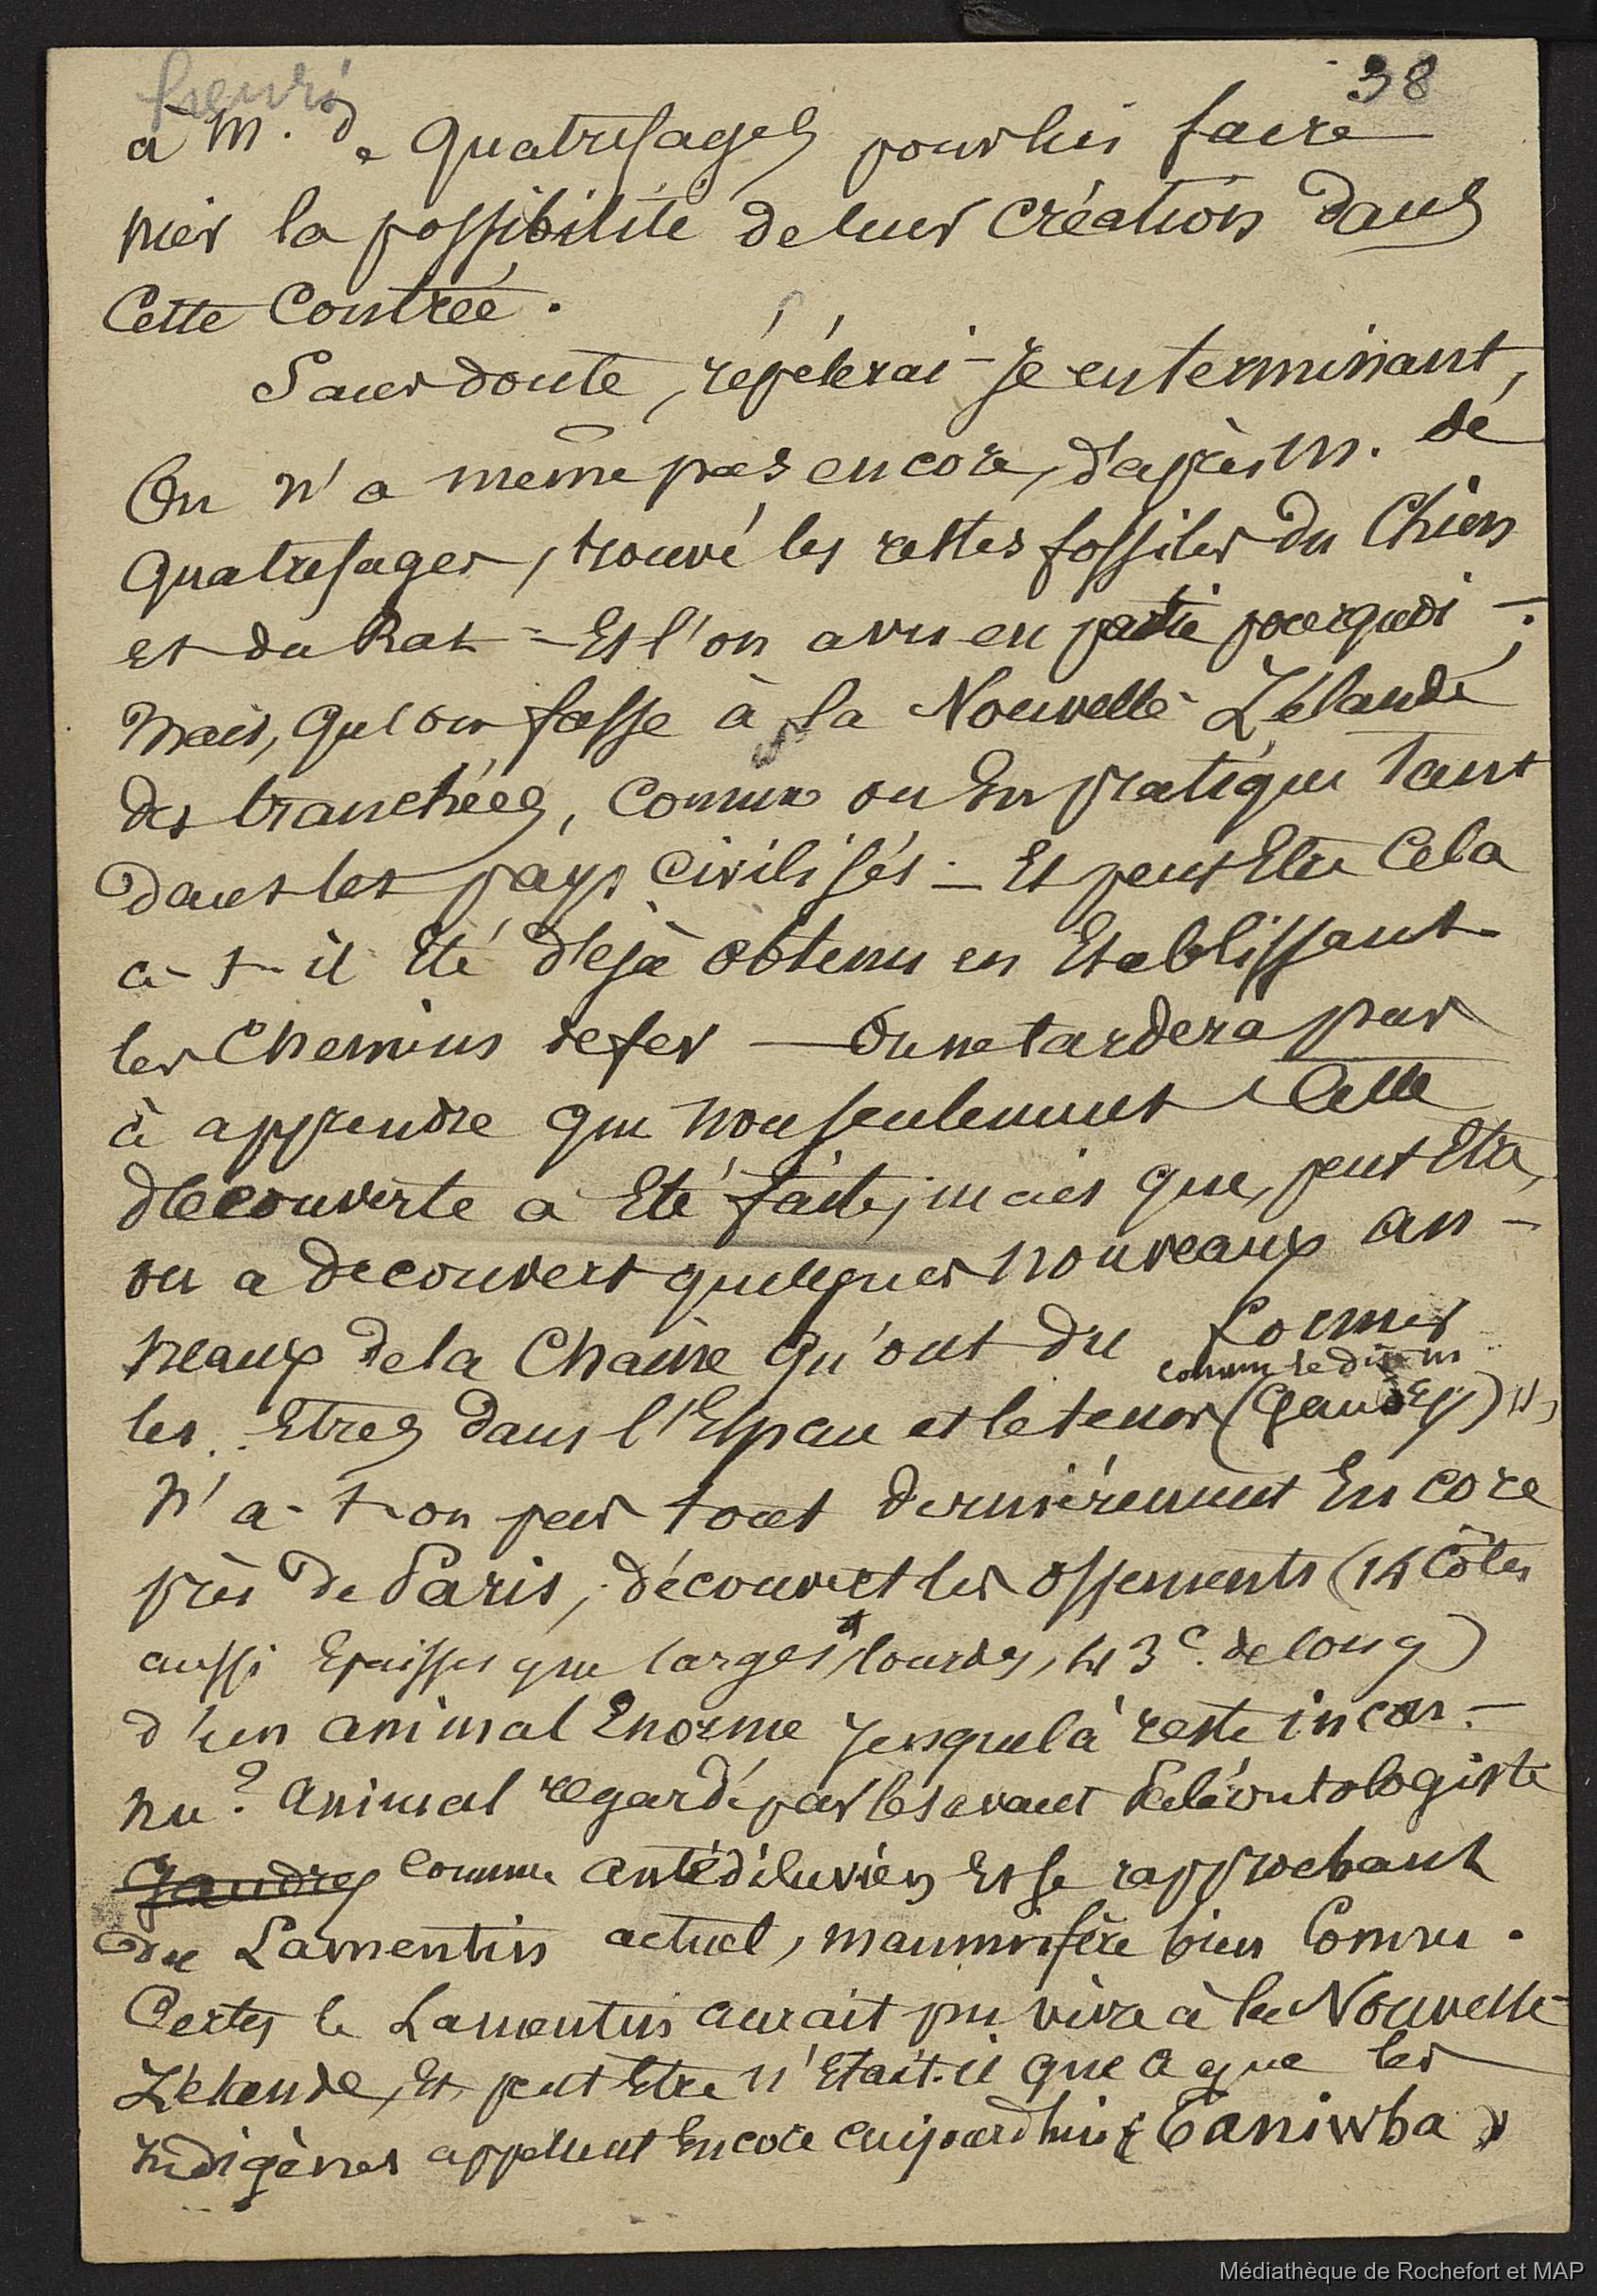 henri
38
à M. de Quatrefages pour lui faire
nier la possibilité de leur création dans
Cette Contrée.
Sans doute, répéterai-je en terminant,
On n'a même pas encore, d'après M. de
Quatrefages, trouvé les restes fossiles du Chien
et du Rat = Et l'on a vu en partie pourquoi -;
Mais, qu'on fasse à la Nouvelle Zélande
des tranchées, comme on En pratique tant
dans les pays civilisés - Et peut Etre Cela
a-t-il Eté déjà obtenu en Etablissant
les Chemins de fer — On ne tardera pas
à apprendre que non seulement Cette
découverte a Eté faite, mais que, peut Etre,
on a découvert quelques nouveaux an-
neaux de la Chaine qu'ont du former
comme le dit M.
les Etres dans l'Espace et le tems (Gaudry)
N'a-t-on pas tout dernièrement Encore
près de Paris, découvert les ossements (14 Côtes
aussi Epaisses que larges et lourdes, 43c. de long)
d'un animal Enorme jusque là resté incon-
nu? Animal regardé par le savant Paléontologiste
Gaudry comme antédiluvien Et se rapprochant
du Lamentin actuel, mammifère bien Connu.
Certes le Lamentin aurait pu vivre à la Nouvelle-
Zélande, Et peut Etre n'Etait-il que ce que les
Indigènes appellent Encore aujourdhui « Taniwha »
Médiathèque de Rochefort et MAP